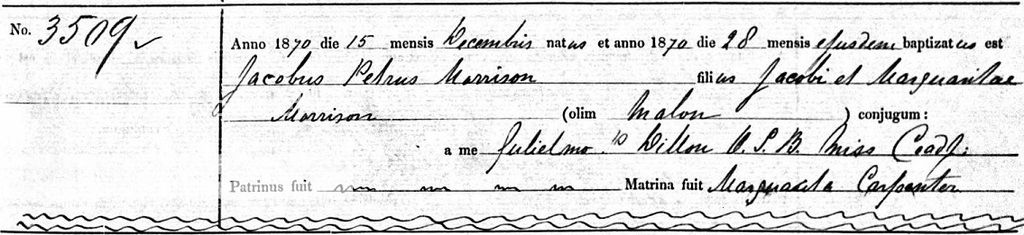 No. 3509
Anno 1870 die 15 mensis Decembris natus et anno 1870 die 28 mensis ejusdem baptizatus est
Jacobus Petrus Morrison filius Jacobi et Marguaritae
Morrison (olim Malon) conjugum:
a me Julielmo Dillon O.S.B. Miss Coadj.
Patrinus fuit Matrina fuit Marguarita Carpenter